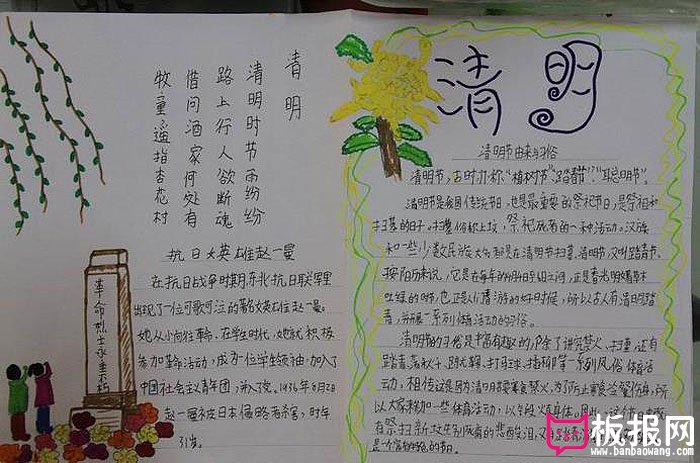 清明
清明时节雨纷纷
路上行人欲断魂
借问酒家何处有
牧童遥指杏花村
抗日英雄赵一曼
在抗日战争时期东北抗日联军里
出现了一位可歌可泣的著名女英雄赵一曼。
她从小向往革命。在学生时代,她就积极
参加革命活动,成为一位学生领袖,加入了
中国社会主义青年团,并入党。1936年8月2日
赵一曼被日本侵略者杀害,时年
31岁。
革命烈士永垂不朽
清明
清明节由来与习俗
清明节,古时亦称“植树节”“踏青节”“聪明节”。
清明节是我国传统节日,也是最重要的祭祀节日,是祭祖和
扫墓的日子。扫墓俗称上坟,祭祀死者的一种活动。汉族
和一些少数民族大多都是在清明节扫墓。清明节,又叫踏青节,
按阳历来说,它是在每年的4月4日至6日之间,正是春光明媚草木
吐绿的时节,也正是人们春游的好时候,所以古人有清明踏
青,并开展一系列体育活动的习俗。
清明节的习俗是丰富有趣的,除了讲究禁火、扫墓,还有
踏青、荡秋千、蹴鞠、打马球、插柳等一系列风俗体育活
动。相传这是因为清明节要寒食禁火,为了防止寒食冷餐伤身,所
以大家来参加一些体育活动,以锻炼身体。因此,这个节日中既
有祭扫新坟生别死离的悲酸泪,又
是个富有特色的节日。
板报网
www.banbaowang.com